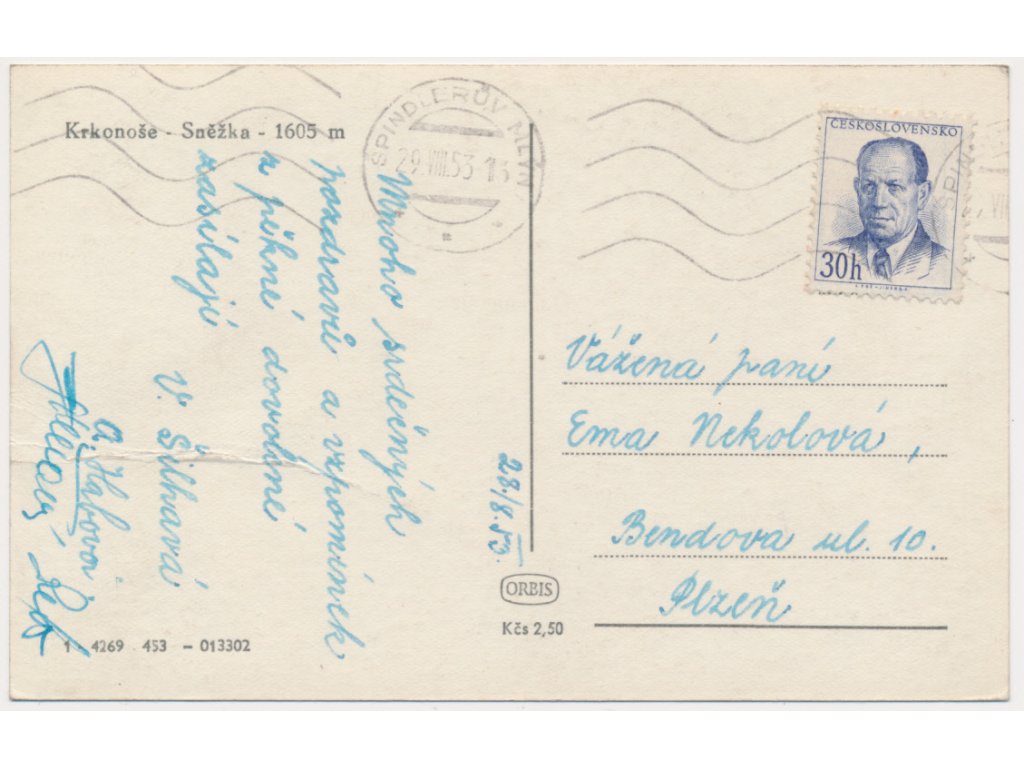 Krkonoše - Sněžka - 1605 m
SPINDLERŮV MLÝN
29.VIII.53 13
ČESKOSLOVENSKO
30h
SPIN
VIII
Mnoho srdečných
pozdravů a vzpomínek
z pěkné dovolené
zasílají
V. Šilhavá
a
28./8.53.
Vážená paní
Ema Nekolová,
Bendova ul. 10.
Plzeň
ORBIS
Kčs 2,50
1 - 4269 453 - 013302